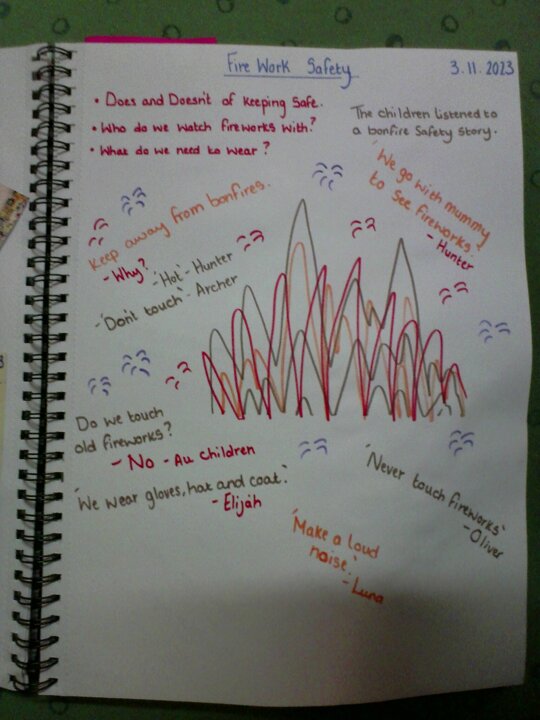 Fire Work Safety
3.11.2023
• Does and Doesn't of keeping safe.
• Who do we watch fireworks with?
• What do we need to wear?
The children listened to
a bonfire safety story.
'We go with mummy
to see fireworks.'
- Hunter
Keep away from bonfires.
- Why? 'Hot' - Hunter
- 'Don't touch' - Archer
Do we touch
old fireworks?
- No - All children
'We wear gloves, hat and coat.'
- Elijah
'Never touch fireworks'
- Oliver
'Make a loud
noise.'
- Luna